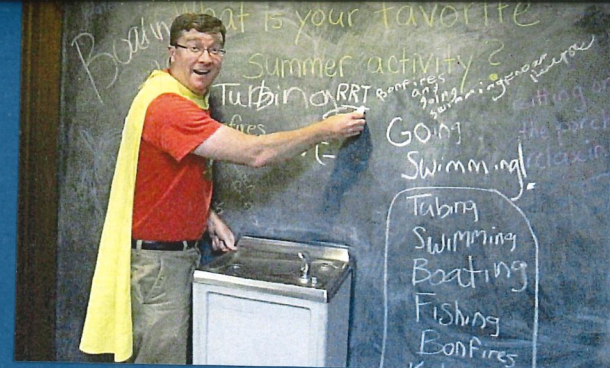 What is your favorite
summer activity?
Boating
Tubing
RRT
Bonfires
and
going
swimming
fires
Going
Swimming!
G
sitting on
the porch
relaxin
Tubing
Swimming
Boating
Fishing
Bonfires